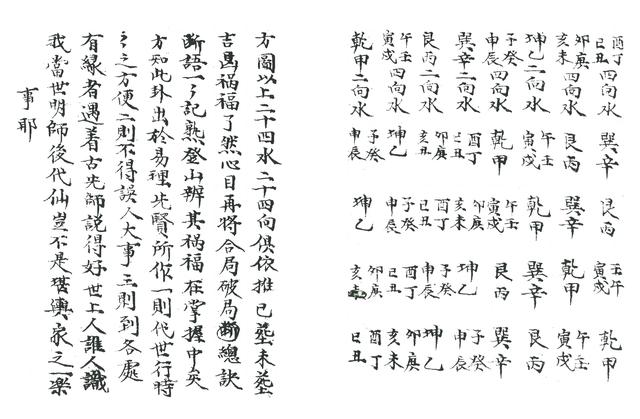 酉丁巳丑四向水 巽辛 艮丙 午壬寅戌 乾甲
卯庚亥未四向水 艮丙 巽辛 乾甲 午壬寅戌
坤乙二向水 午壬寅戌 乾甲 巽辛 艮丙
子癸申辰四向水 乾甲 午壬寅戌 艮丙 巽辛
巽辛二向水 酉丁巳丑 卯庚亥未 坤乙 子癸申辰
艮丙二向水 卯庚亥未 酉丁巳丑 子癸申辰 坤乙
午壬寅戌四向水 坤乙 子癸申辰 酉丁巳丑 卯庚亥未
乾甲二向水 子癸申辰 坤乙 卯庚亥未 酉丁巳丑
方圖以上二十四水二十四向俱依推已塟未塟
吉凶禍福了然心目再將合局破局斷總訣
断語一々記熟登山辦其禍福在掌握中矣
方知此卦出於易理先賢所作一則代世行時
々之方便二則不得誤人大事三則到各處
有緣者遇着古先師說得好世上人誰人識
我當世明師後代仙豈不是堪輿家之一樂
事耶